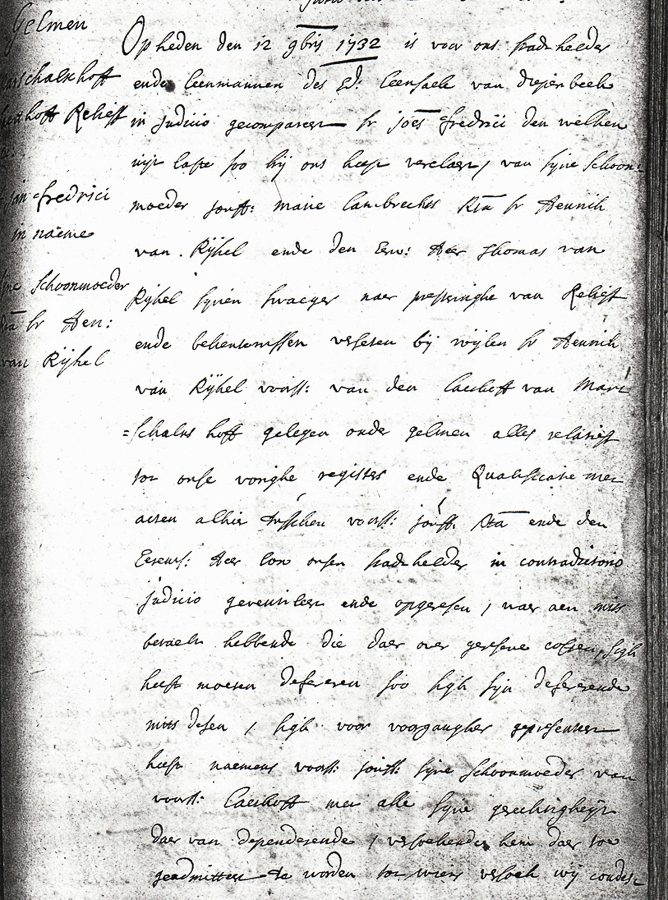 Gelmen
schalkhoff
hoff Relieff
Jan fredrici
in naeme
sijne Schoonmoeder
Rta Sr Hen:
van Rijkel
Op heden den 12 9bris 1732 is voor ons stadthelder
ende leenmannen des Ed: leensaele van diepenbeek
in Judicio gecompareert Sr Joes fredrici den welken
uijt laste soo hij ons heeft verclaert, van sijne Schoon-
moeder Jouff: Marie Lambrechts Rta Sr Henrik
van Rijkel ende den Eerw: Heer Thomas van
Rijkel sijnen swaeger naer van Relieff
ende bekentenissen by wijlen Sr Henrik
van Rijkel voorss: van den laethoff van Mars
=schalks hoff gelegen onder gelmen alles relatieff
tot onse vorighe registers ende Qualificatie met
acten alhier tusschen voorss: Jouff: Rta ende den
Eerw: Heer voor onsen stadthelder in contradictorio
Judicio geventileert ende opgeresen, waer aen mits
betaelt hebbende die daer over geresene costen, sigh
heeft moeten defereren soo sigh sijn defererende
mits desen, sigh voor voorgangher gepresenteert
heeft naemens voorss: Jouff: sijne Schoonmoeder van
voorss: Laethoff met alle sijne gerechtigheijt
daer van dependerende, versoekende hem daer toe
geadmitteert te worden tot wiens versoek wij